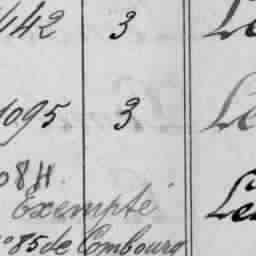 442 3 Le
1095 3. Le
08H.
Exempté Le
n°85 de Combourg